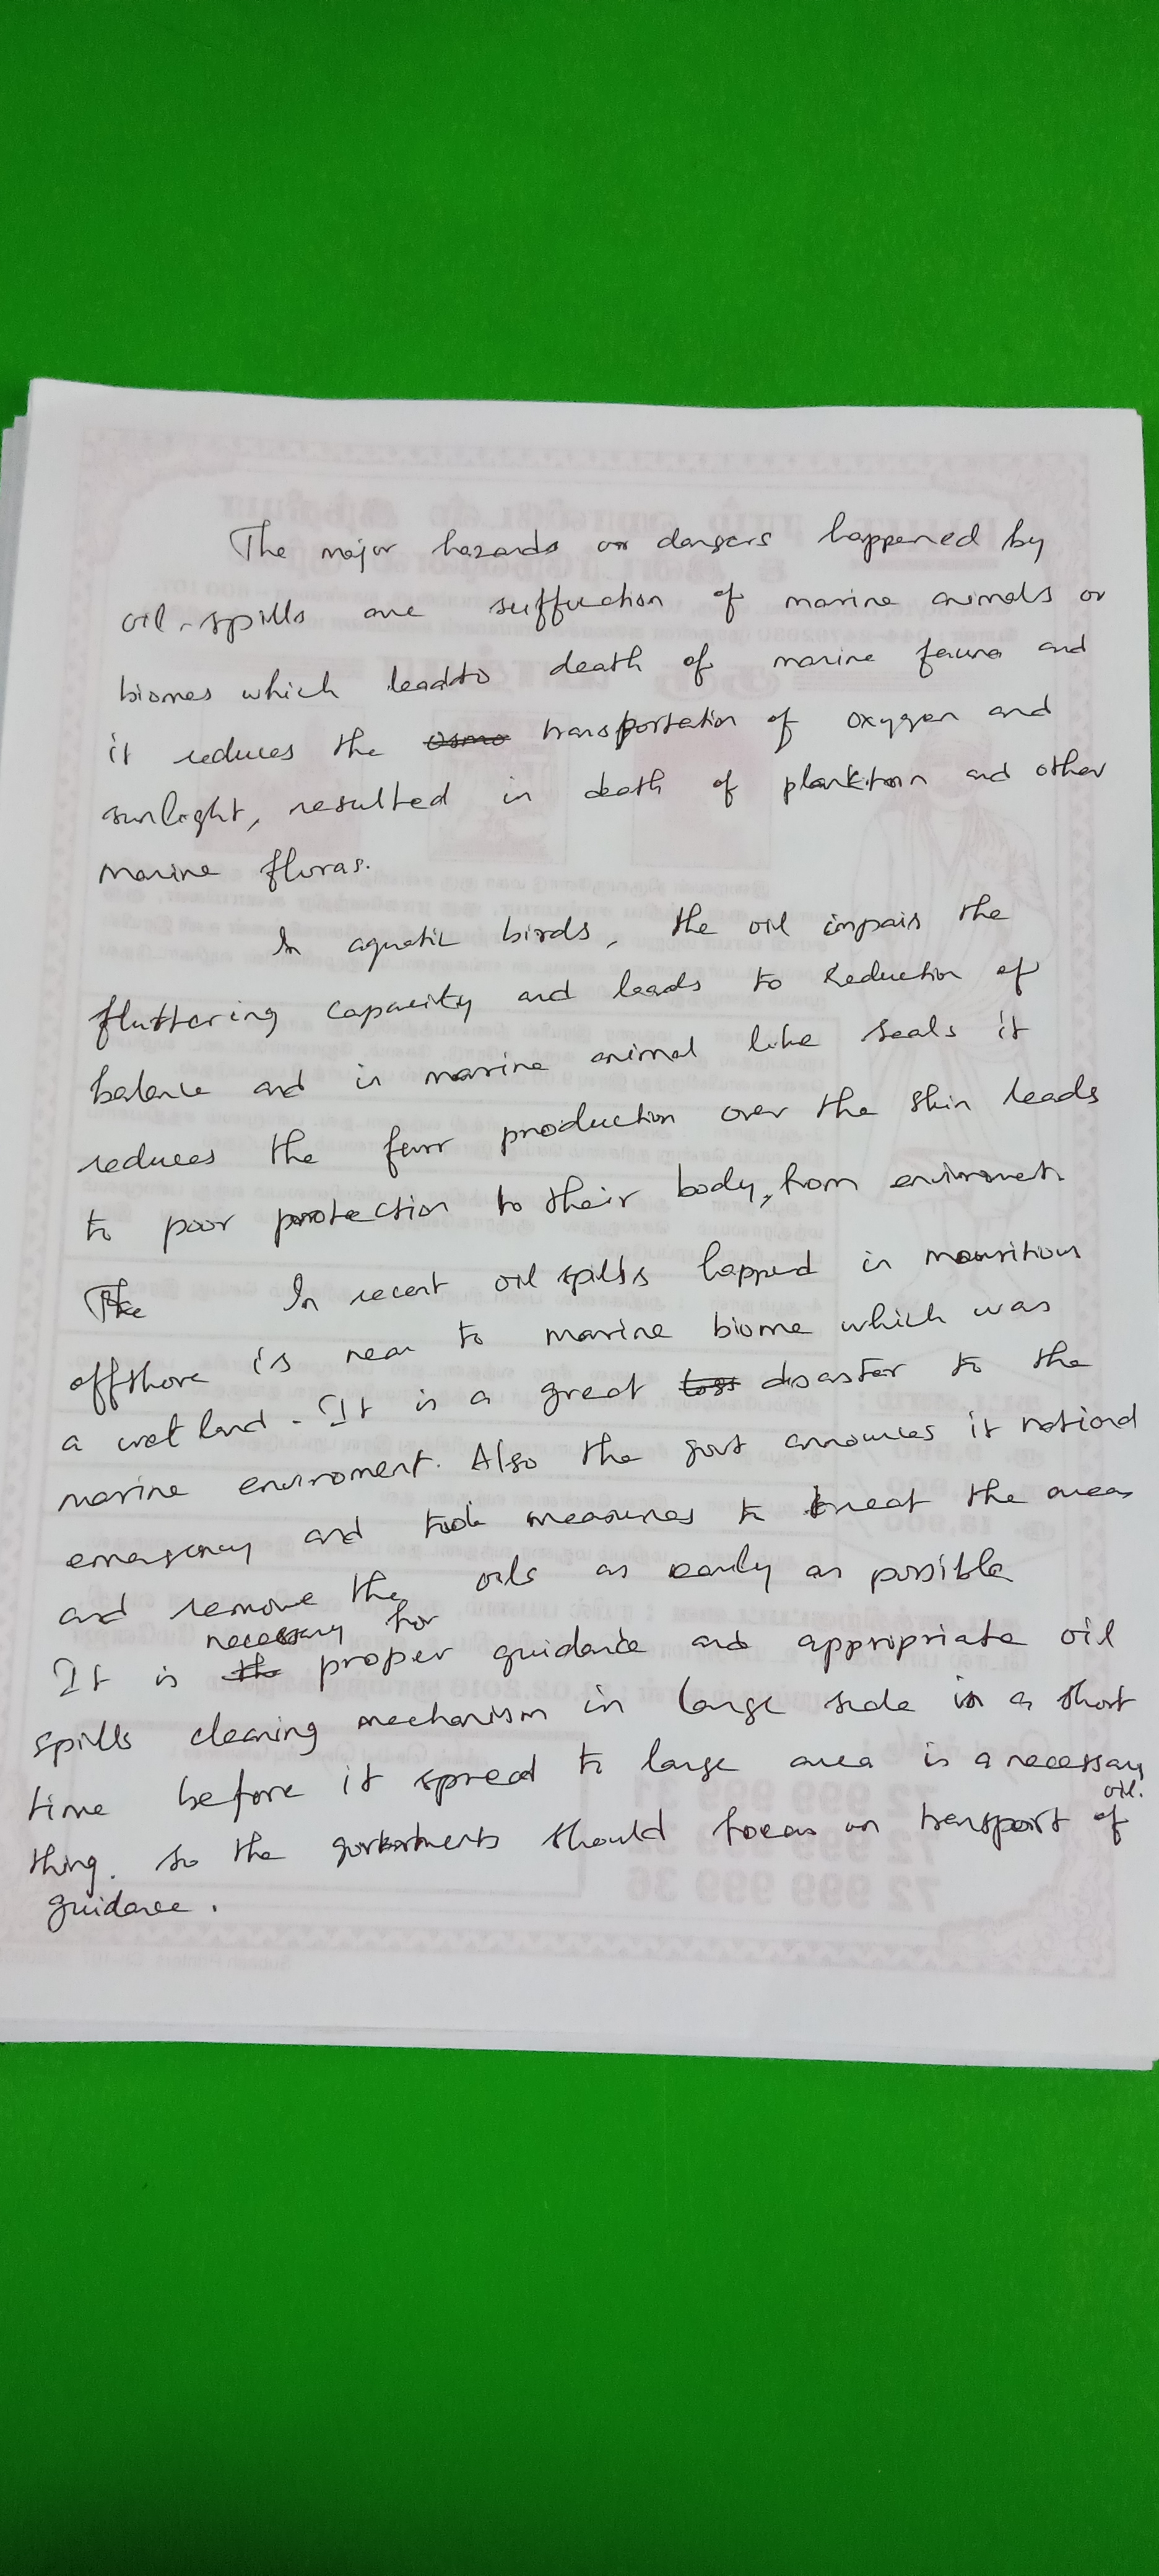 The major hazards or dangers happened by
oil-spills are suffucation of marine animals or
biomes which leadsto death of marine fauna and
it reduces the transportation of oxygen and
sunlight, resulted in death of planktonn and other
marine floras.
In aquatic birds, the oil impais the
fluttering capacity and leads to Reduction of
balance and in marine animal like seals it
reduces the furr production over the skin leads
to poor protection to their body, from enviroment.
The In recent oil spills happed in mauritius
offshore is near to marine biome which was
a wet land. It is a great disaster to the
marine enviroment. Also the govt announces it national
emergency and took measures to treat the areas
and remove the oils as early as possible
necessary for
It is proper guidance and appripriate oil
spills cleaning mechanism in large scale in a short
time before it spread to large area is a necessary
thing. so the should focus on transport of oil.
guidance.